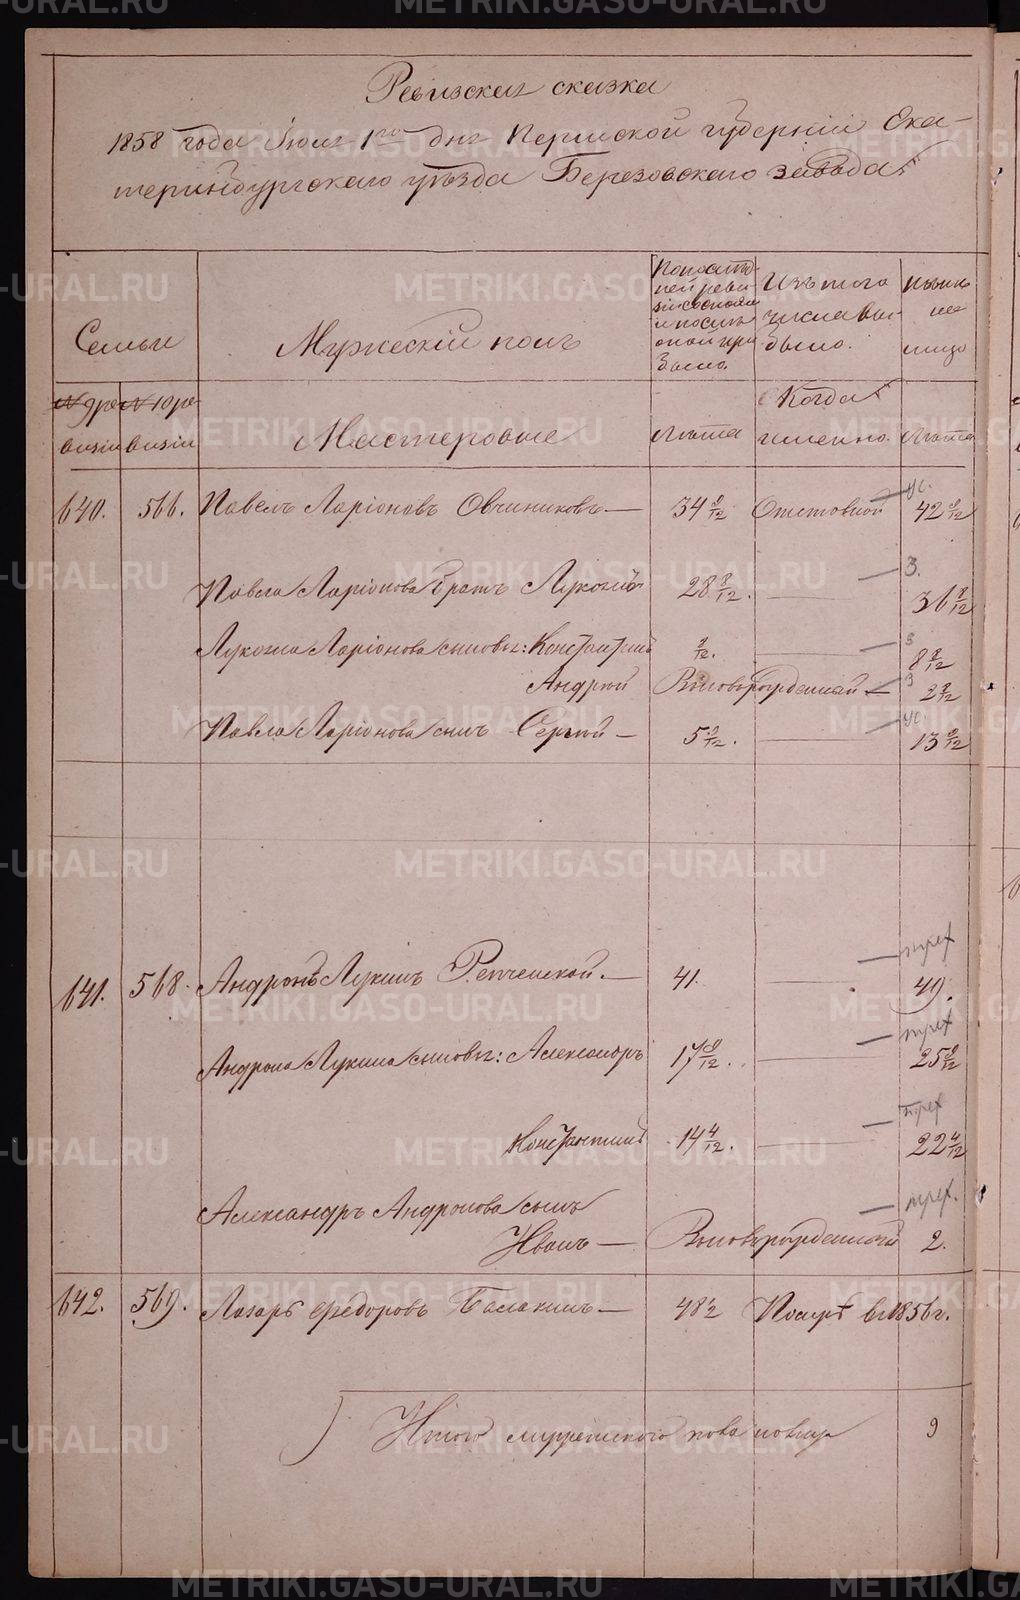 Ревизская сказка
1858 года Июля 1го дня Пермской губернiи Ека-
теринбургскаго уѣзда Березовскаго завода
Семьи
Мужескiй полъ
По послѣд-
ней реви-
зiи состояло
и послѣ
оной при
было.
Изъ того
числа вы-
было.
Нынѣ
на
лицо
№ 9 ре-
визiи
№ 10 ре-
визiи
Мастеровые
Лѣта
Когда
именно.
Лѣта
640. 566. Павелъ Ларiоновъ Овчиниковъ— 34 8/12 Отставной 42 8/12
Павла Ларiонова братъ 28 8/12. 3. 36 8/12
Ларiонова сыновья: Константинъ 8/12. 3 8 8/12
Андрей Новорожденный — 3 2 2/12
Павла Ларiонова сынъ Сергѣй — 5 8/12. 13 8/12
641. 568. Андронъ Лукинъ — 41. 49.
Андрона Лукина сыновья: Александръ 17 8/12. 25 8/12
Константинъ 14 4/12. 22 4/12
Александръ Андронова сынъ
Иванъ — Новорожденный 2.
642. 569. Лазарь Федоровъ Балакинъ — 48 1/2 Помръ в 1856 г.
Итого мужескаго пола 9
METRIKI.GASO-URAL.RU